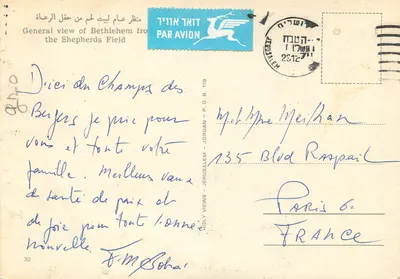 منظر عام لبيت لحم من حقل الرعاة
General view of Bethlehem from
the Shepherds Field
דואר אויר
PAR AVION
ירושלים
JERUSALEM
D'ici du Champs des
Bergers je prie pour
vous et toute votre
famille. Meilleurs vœux
de santé de paix et
de joie pour toute l'année
nouvelle
HOLY VIEWS - JERUSALEM - JORDAN - P.O.B. 119
30
M. et Mme
135 Blvd Raspail
PARIS 6.
FRANCE